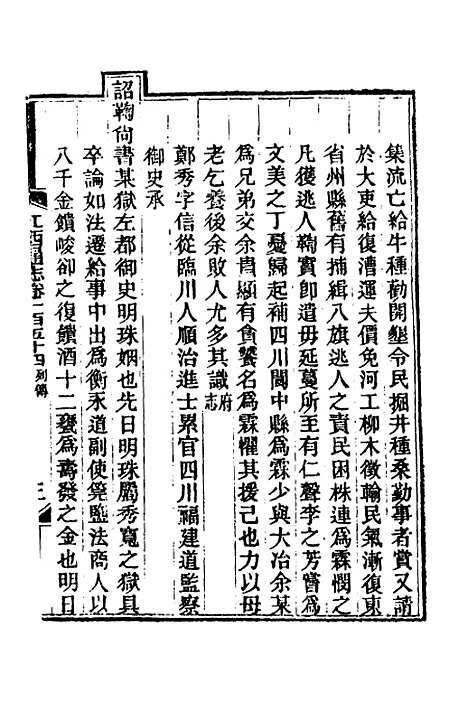 集流亡給牛種勸開墾令民掘井種桑勤事者賞又請
於大吏給復漕運夫價免河工柳木徵輸民氣漸復東
省州縣舊有捕緝八旗逃人之責民困株連爲霖憫之
凡獲逃人鞫實即遣毋延蔓所至有仁聲李之芳嘗爲
文美之丁憂歸起補四川閬中縣爲霖少與大冶余某
爲兄弟交余貴顯有貪饕名爲霖懼其援己也力以母
老乞養後余敗人尤多其識府志
鄭秀字信從臨川人順治進士累官四川福建道監察
御史承
詔鞫尙書某獄左都御史明珠姻也先日明珠屬秀寬之獄具
卒論如法遷給事中出爲衡永道副使筦鹽法商人以
八千金饋峻卻之復饋酒十二甕爲壽發之金也明日
江西通志卷一百五十四列傳
三